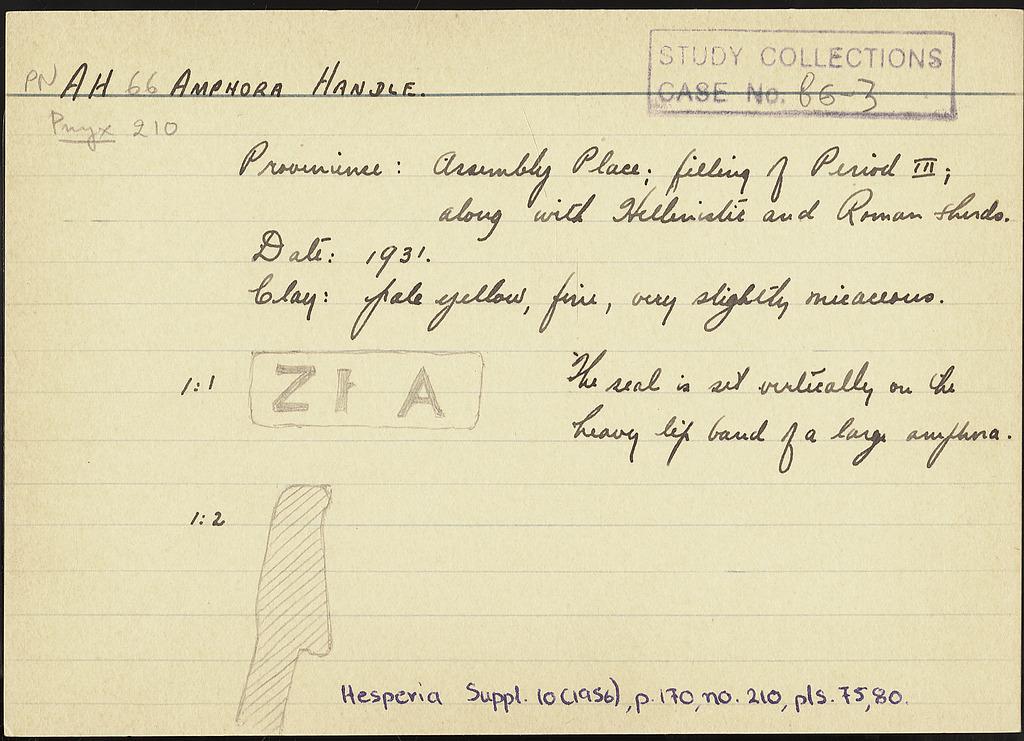 STUDY COLLECTIONS
CASE No. 86-3
PN AH 66 AMPHORA HANDLE.
Pnyx 210
Provenience: Assembly Place; filling of Period III;
along with Hellenistic and Roman sherds.
Date: 1931.
Clay: pale yellow, fine, very slightly micaceous.
1:1
The seal is set vertically on the
heavy lip band of a large amphora.
1:2
Hesperia Suppl. 10 (1956), p. 170, no. 210, pls. 75, 80.